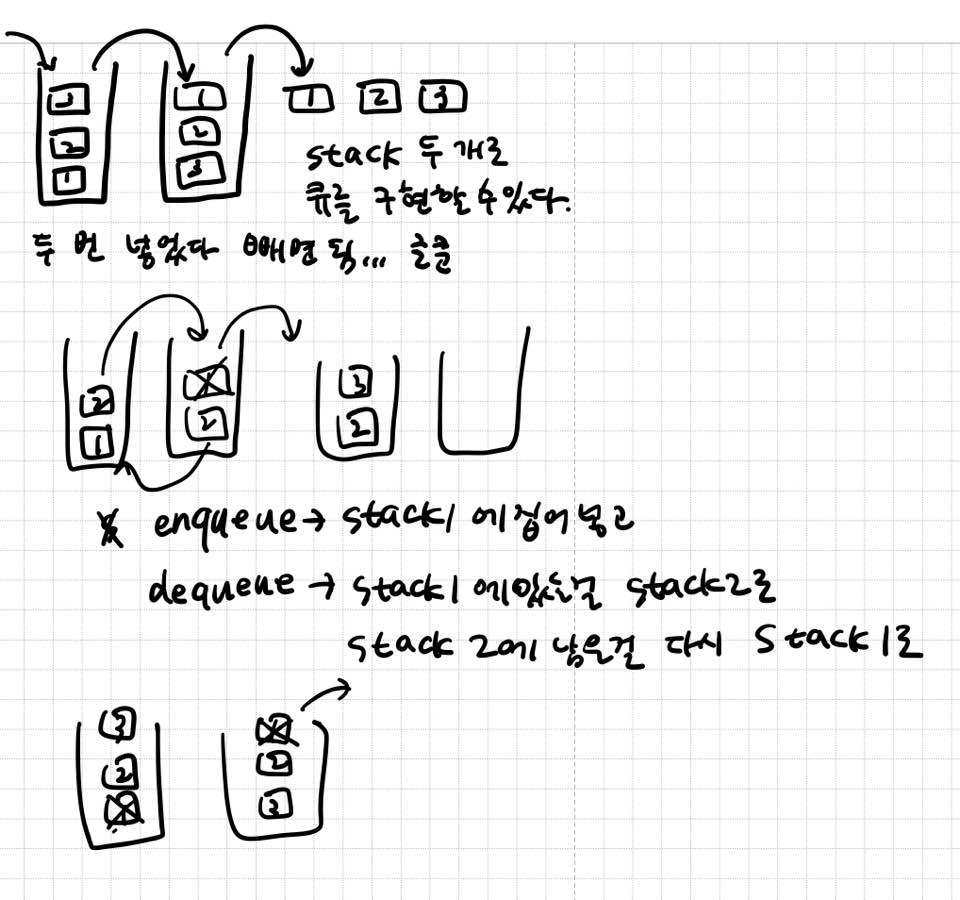 3 1 1 2 3
2 2
1 3
stack 두 개로
큐를 구현할 수 있다.
두 번 넣었다 빼면 됨... 굴굴
2 3
1 2 2
enqueue → stack1 에 집어넣고
dequeue → stack1 에있는걸 stack2로
stack 2에 남은걸 다시 Stack 1로
3
2 2
3